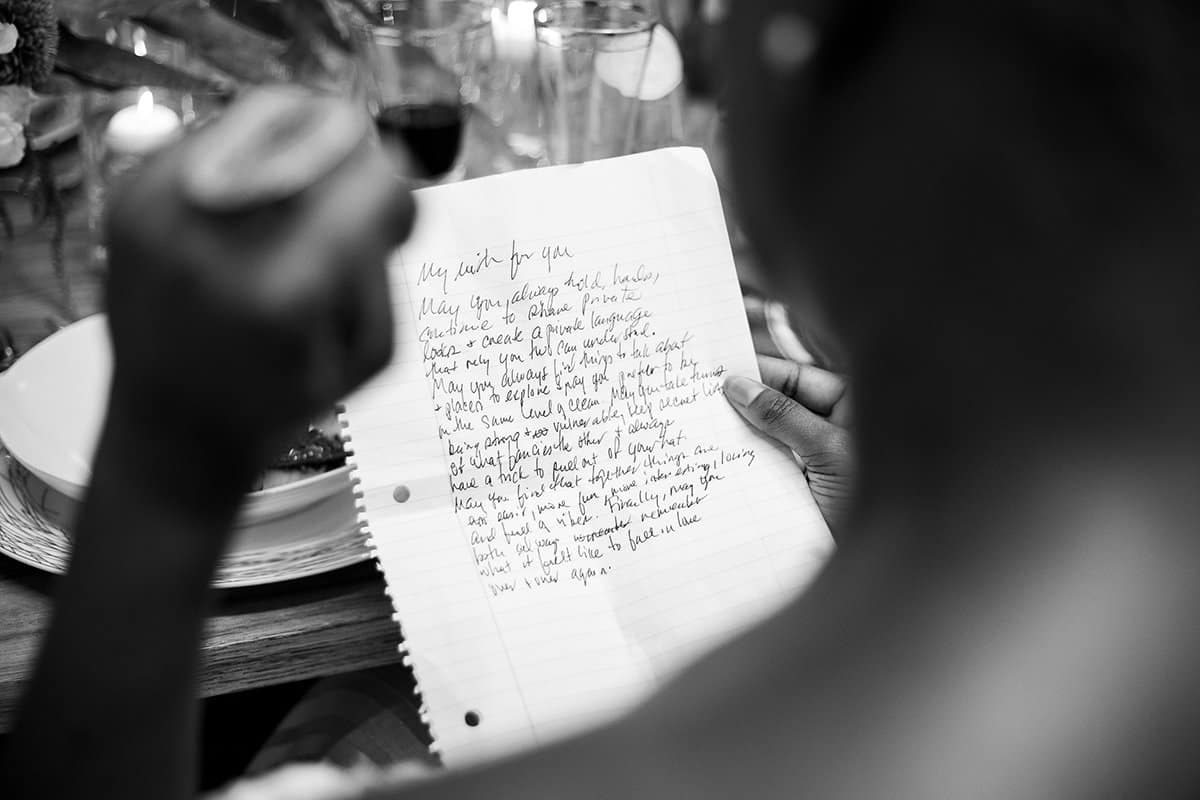 My wish for you
May you always hold hands,
continue to share private
looks & create a private language
that only you two can understand.
May you always find things to talk about
& places to explore & may you prefer to be
in the same level of clean. May you take turns
being strong & vulnerable, keep secret lists
of what fancies the other & always
have a trick to pull out of your hat.
May you find that together things are
easier, more fun & more interesting, loving
and full of vibes. Finally, may you
both always remember
what it felt like to fall in love
over & over again.